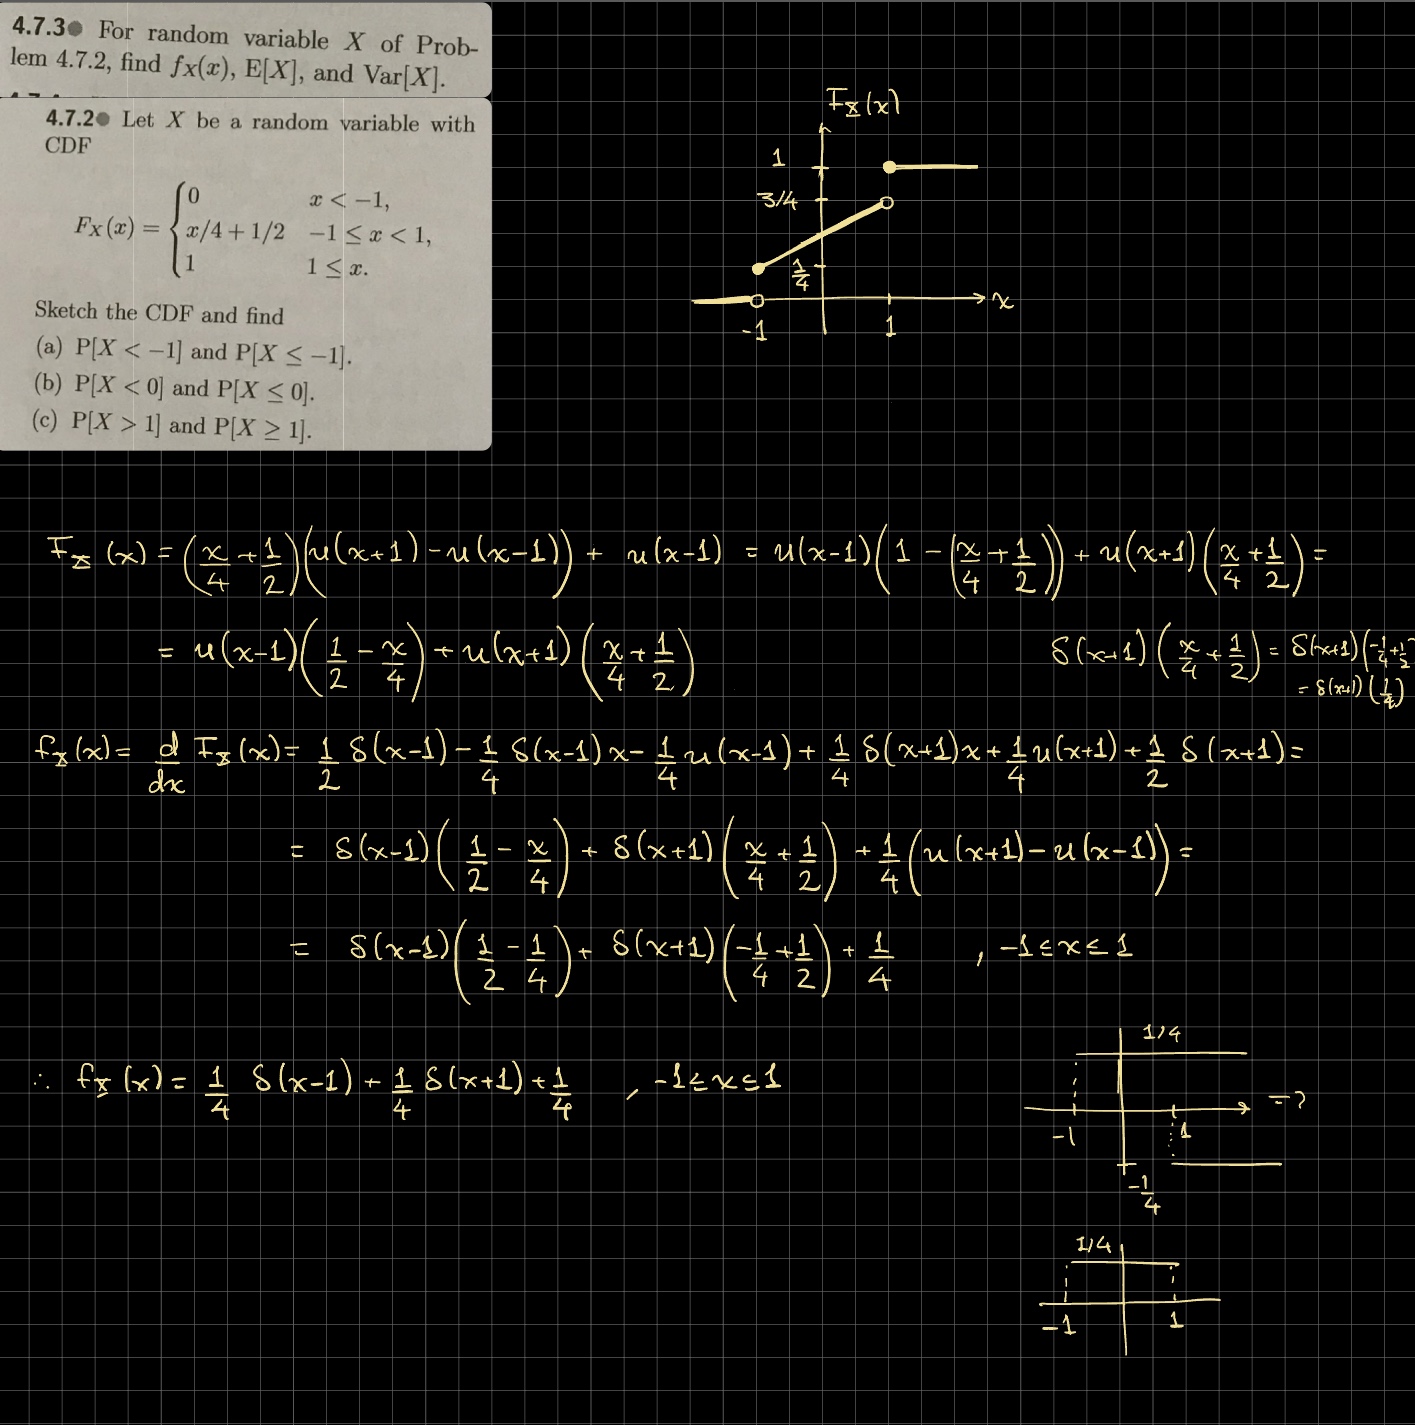 4.7.3● For random variable X of Prob-
lem 4.7.2, find fX(x), E[X], and Var[X].
4.7.2● Let X be a random variable with
CDF
FX(x) = { 0 x < −1,
x/4 + 1/2 −1 ≤ x < 1,
1 1 ≤ x.
Sketch the CDF and find
(a) P[X < −1] and P[X ≤ −1].
(b) P[X < 0] and P[X ≤ 0].
(c) P[X > 1] and P[X ≥ 1].
FX(x)
1
3/4
1/4
x
-1 1
FX(x) = (x/4 + 1/2)(u(x+1) - u(x-1)) + u(x-1) = u(x-1)(1 - (x/4 + 1/2)) + u(x+1)(x/4 + 1/2) =
= u(x-1)(1/2 - x/4) + u(x+1)(x/4 + 1/2)
δ(x+1)(x/4 + 1/2) = δ(x+1)(-1/4 + 1/2)
= δ(x+1)(1/4)
fX(x) = d/dx FX(x) = 1/2 δ(x-1) - 1/4 δ(x-1)x - 1/4 u(x-1) + 1/4 δ(x+1)x + 1/4 u(x+1) + 1/2 δ(x+1) =
= δ(x-1)(1/2 - x/4) + δ(x+1)(x/4 + 1/2) + 1/4(u(x+1) - u(x-1)) =
= δ(x-1)(1/2 - 1/4) + δ(x+1)(-1/4 + 1/2) + 1/4 , -1 ≤ x ≤ 1
∴ fX(x) = 1/4 δ(x-1) + 1/4 δ(x+1) + 1/4 , -1 ≤ x ≤ 1
1/4
-1 1 =?
-1/4
1/4
-1 1